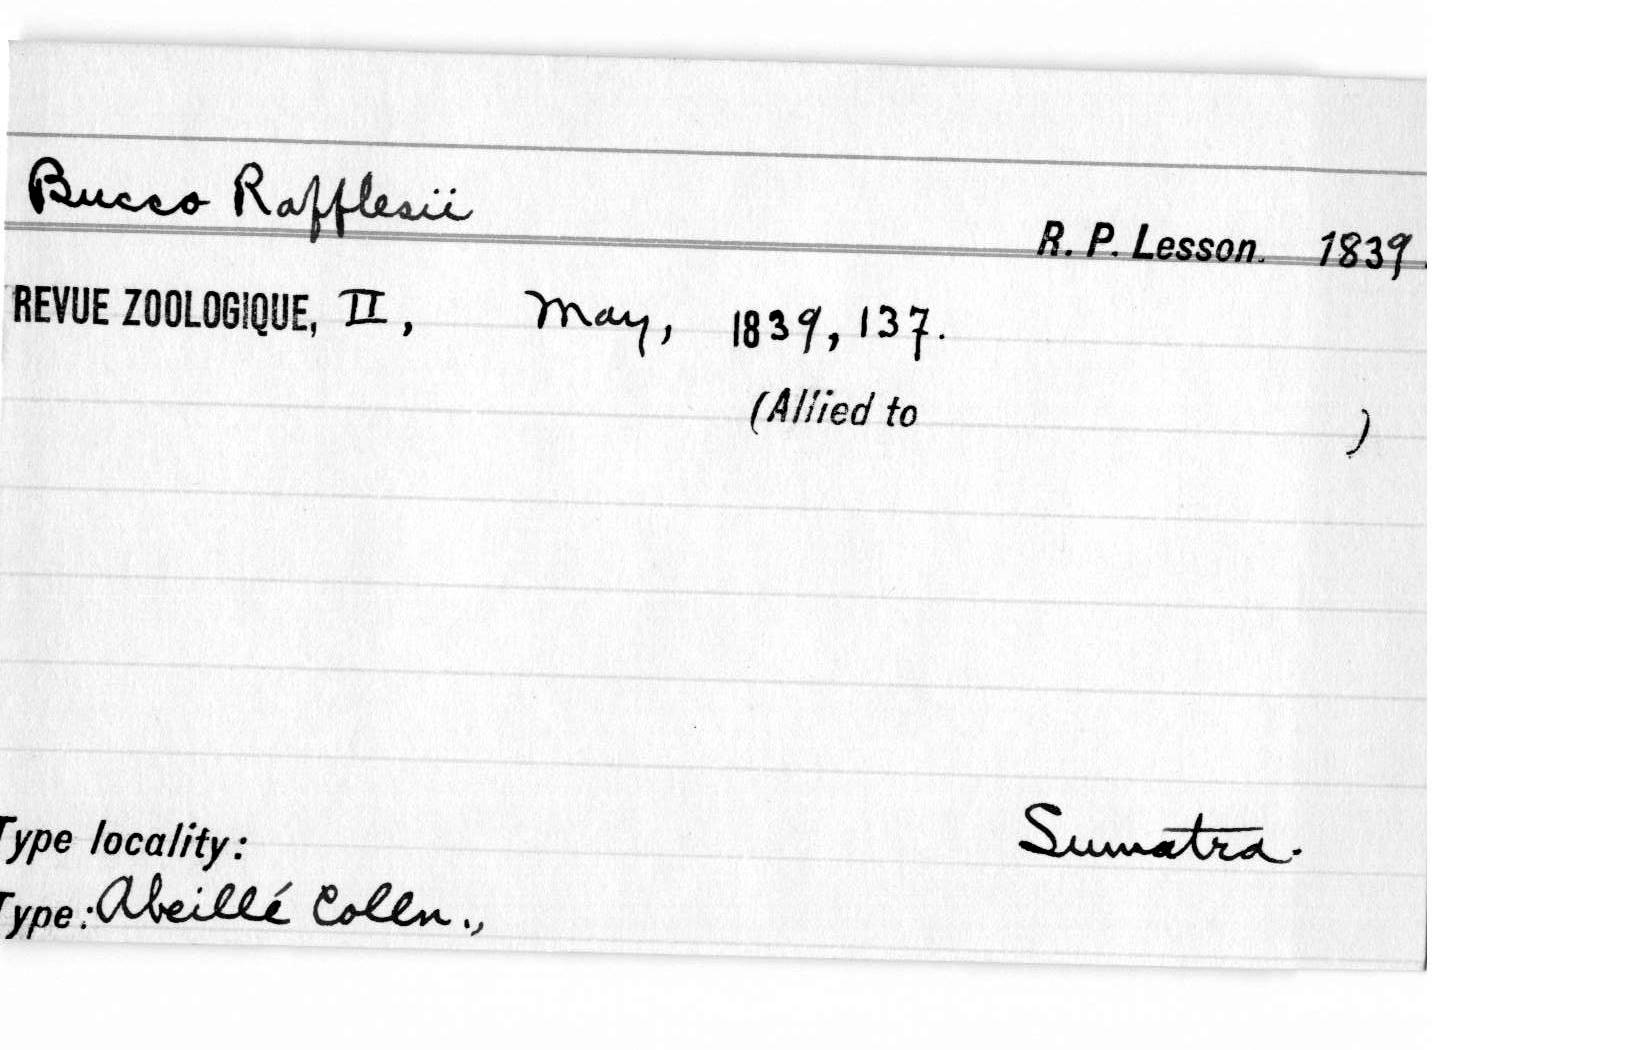 Bucco Rafflesii
R. P. Lesson. 1839.
REVUE ZOOLOGIQUE, II, May, 1839, 137.
(Allied to )
Type locality: Sumatra.
Type: Abeillé Colln.,